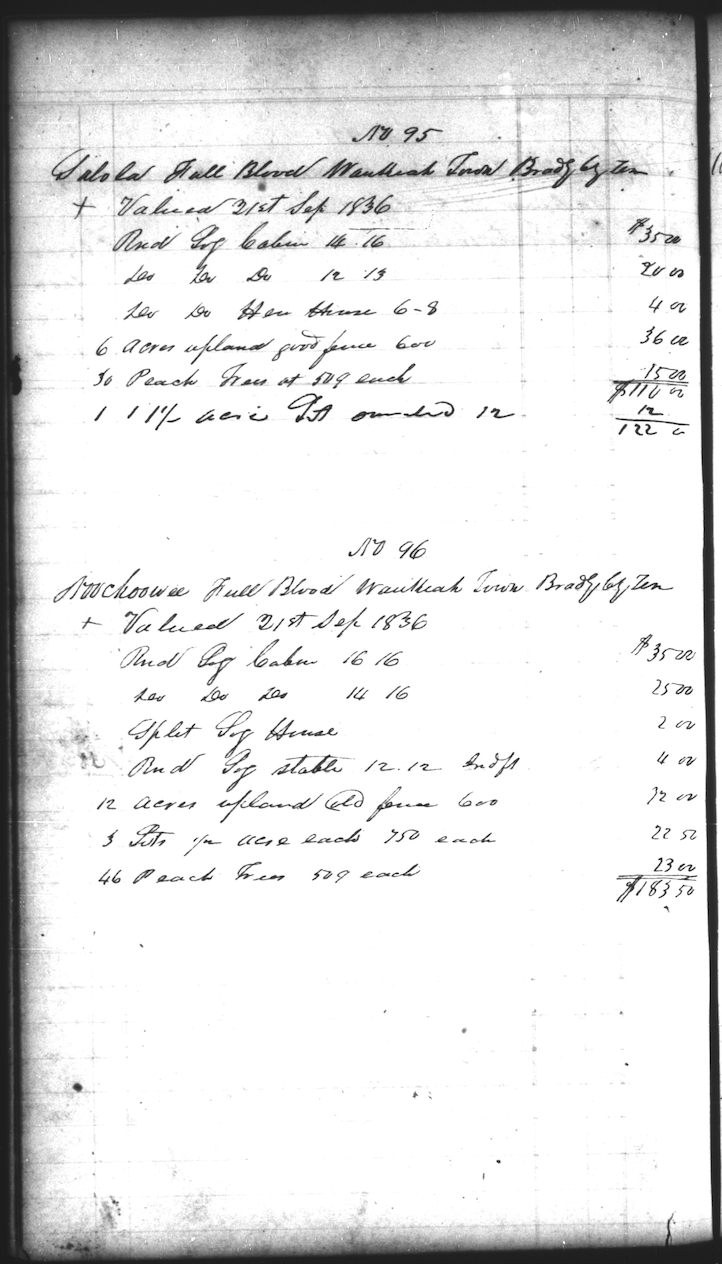 No 95
Salola Full Blood Wautheah Town Bradly Cty Ten
+ Valued 21st Sep 1836
Rnd Log Cabin 14 16 $35 00
Do Do Do 12 13 20 00
Do Do Hen House 6-8 4 00
6 acres upland good fence 600 36 00
30 Peach Trees at 50¢ each 15 00
$110 00
1 1 1/2 acre Lot 12 12
122 0
No 96
Noochoowee Full Blood Wautheah Town Bradly Cty Ten
+ Valued 21st Sep 1836
Rnd Log Cabin 16 16 $35 00
Do Do Do 14 16 25 00
Split Log House 2 00
Rnd Log stable 12.12 4 00
12 acres upland old fence 600 72 00
3 Lots 1/2 acre each 750 each 22 50
46 Peach Trees 50¢ each 23 00
$183 50